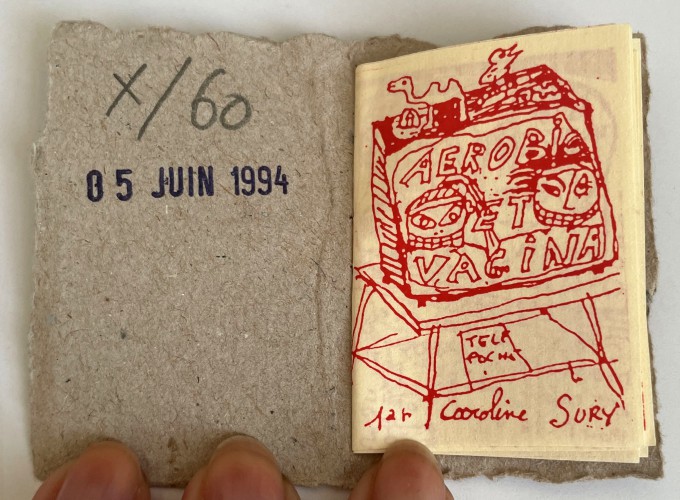 X/60
05 JUIN 1994
AEROBIC
ET
VAGINA
TELE
POCHE
par Caroline SURY